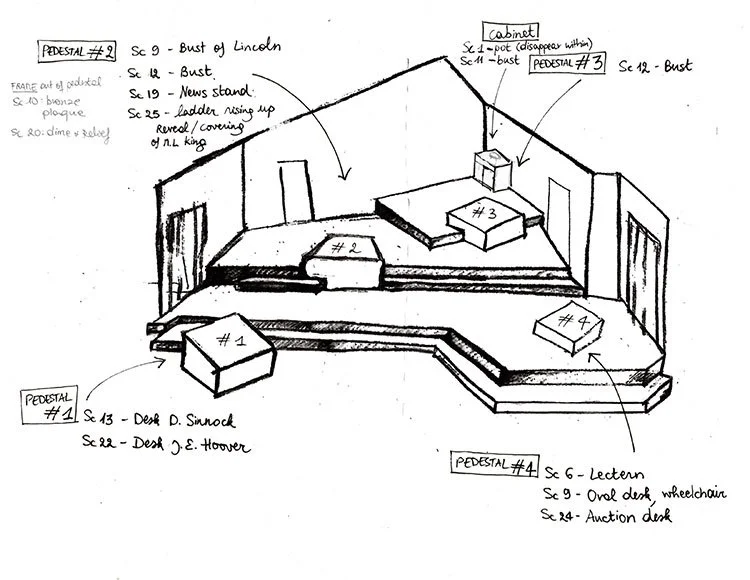 PEDESTAL #2
Sc 9 - Bust of Lincoln
Sc 12 - Bust.
Sc 19 - News stand.
Sc 25 - ladder rising up
Reveal/covering
of M.L King
FRAME out of pedestal
Sc 10: bronze
plaque
Sc 20: dime & Relief
cabinet
Sc 1 - pot (disappear within)
Sc 11 - bust
PEDESTAL #3
Sc 12 - Bust
#3
#2
#4
#1
PEDESTAL
#1
Sc 13 - Desk D. Sinnock
Sc 22 - Desk J.E. Hoover
PEDESTAL #4
Sc 6 - Lectern
Sc 9 - Oval desk, wheelchair
Sc 24 - Auction desk